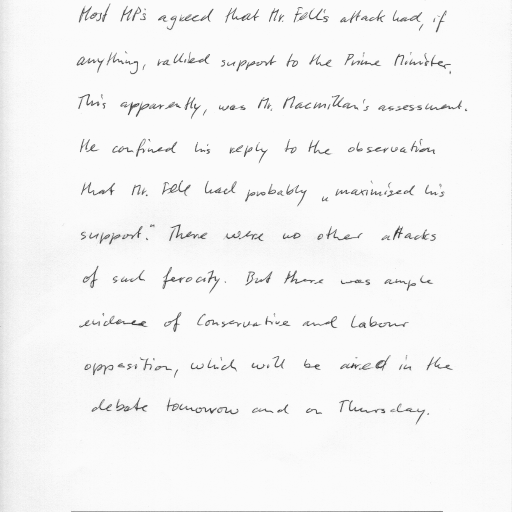 Most MPs agreed that Mr. Fell's attack had, if
anything, rallied support to the Prime Minister.
This apparently, was Mr. Macmillan's assessment.
He confined his reply to the observation
that Mr. Fell had probably "maximized his
support." There were no other attacks
of such ferocity. But there was ample
evidence of Conservative and Labour
opposition, which will be aired in the
debate tomorrow and on Thursday.